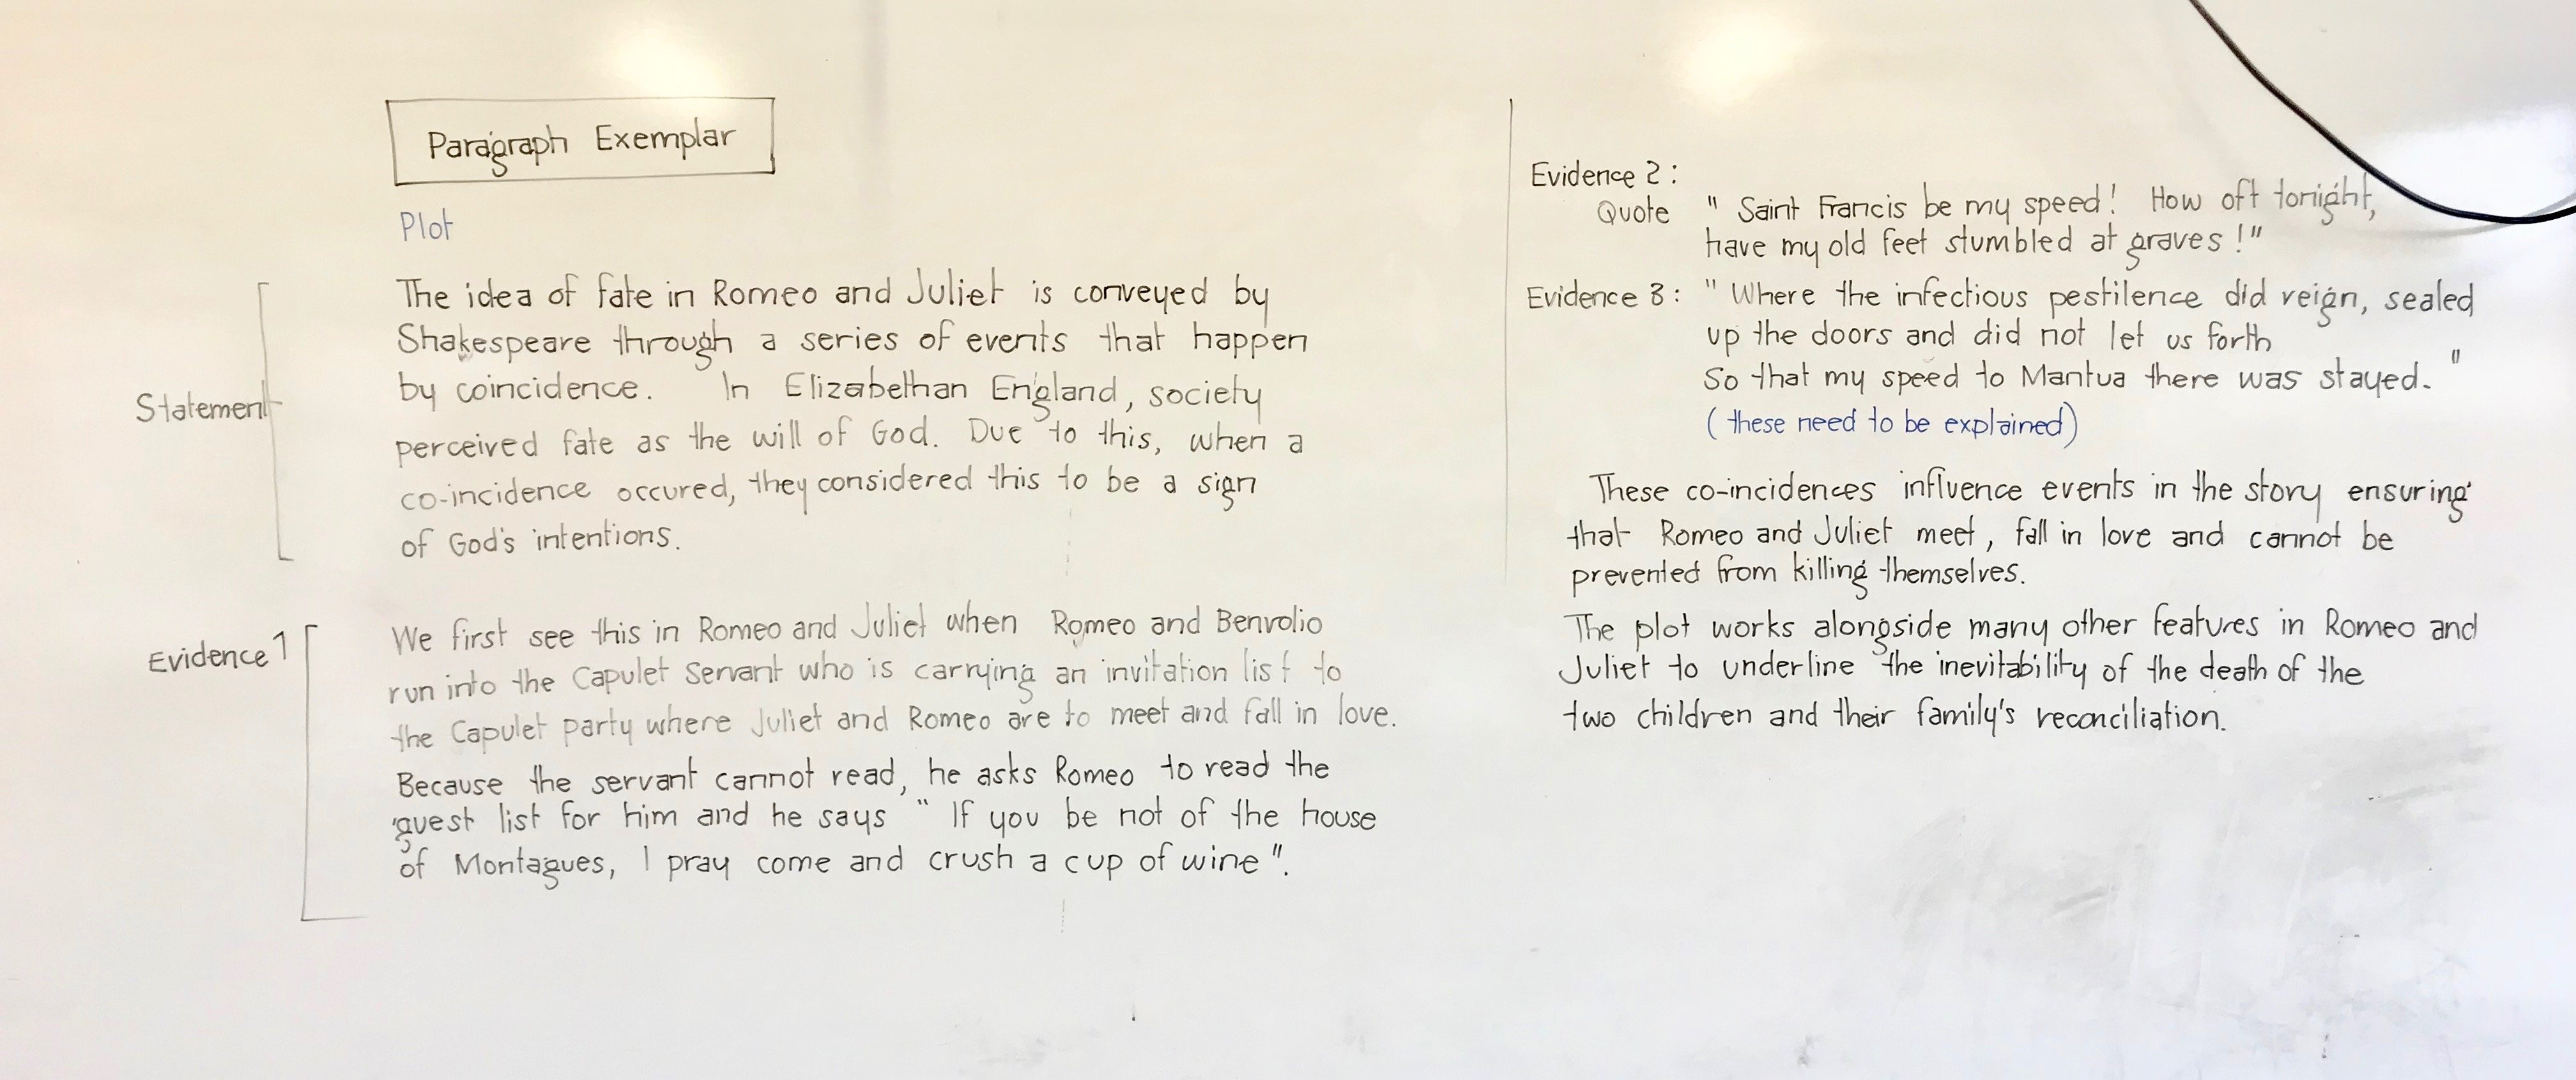 Paragraph Exemplar
Plot
Statement
The idea of fate in Romeo and Juliet is conveyed by
Shakespeare through a series of events that happen
by coincidence. In Elizabethan England, society
perceived fate as the will of God. Due to this, when a
co-incidence occured, they considered this to be a sign
of God's intentions.
Evidence 1
We first see this in Romeo and Juliet when Romeo and Benvolio
run into the Capulet Servant who is carrying an invitation list to
the Capulet party where Juliet and Romeo are to meet and fall in love.
Because the servant cannot read, he asks Romeo to read the
guest list for him and he says " If you be not of the house
of Montagues, I pray come and crush a cup of wine".
Evidence 2:
Quote " Saint Francis be my speed! How oft tonight,
have my old feet stumbled at graves!"
Evidence 3: " Where the infectious pestilence did reign, sealed
up the doors and did not let us forth
So that my speed to Mantua there was stayed. "
(these need to be explained)
These co-incidences influence events in the story ensuring
that Romeo and Juliet meet, fall in love and cannot be
prevented from killing themselves.
The plot works alongside many other features in Romeo and
Juliet to underline the inevitability of the death of the
two children and their family's reconciliation.